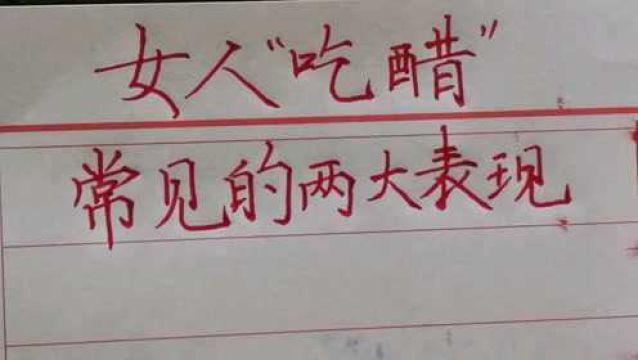 女人“吃醋”
常见的两大表现